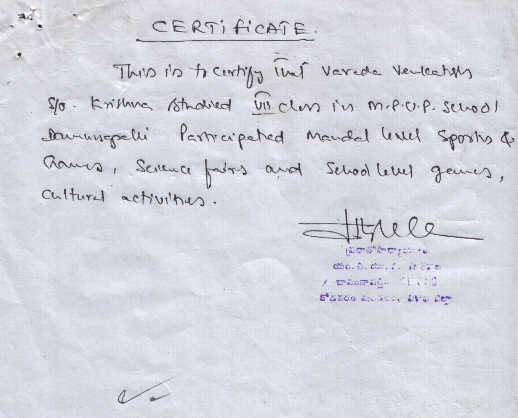 CERTIFICATE.
This is to certify that Varada Venkatesh
S/o. Krishna studied VII class in M.P.U.P. School
Participated Mandal level Sports &
Games, Science fairs and School level games,
Cultural activities.